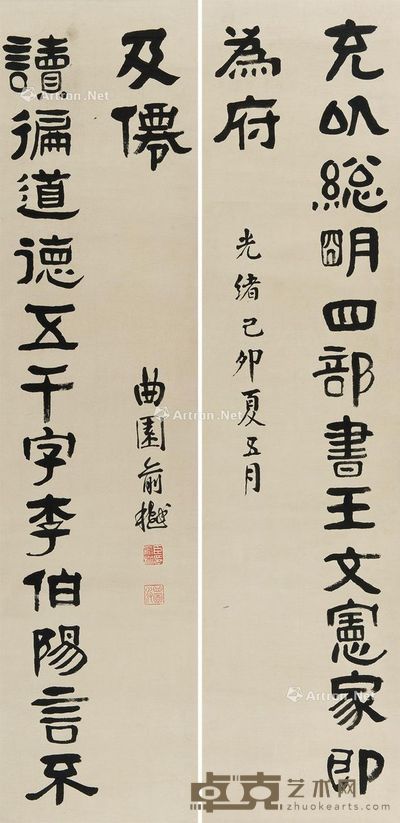 充以總朙四部書王文憲家即
為府
光緒己卯夏五月
讀徧道德五千字李伯陽言不
及僊
曲園俞樾
Artron.Net
Artron.Net
Artron.Net
Artron.Net
Artron.Net
卓克艺术网
zhuokearts.com